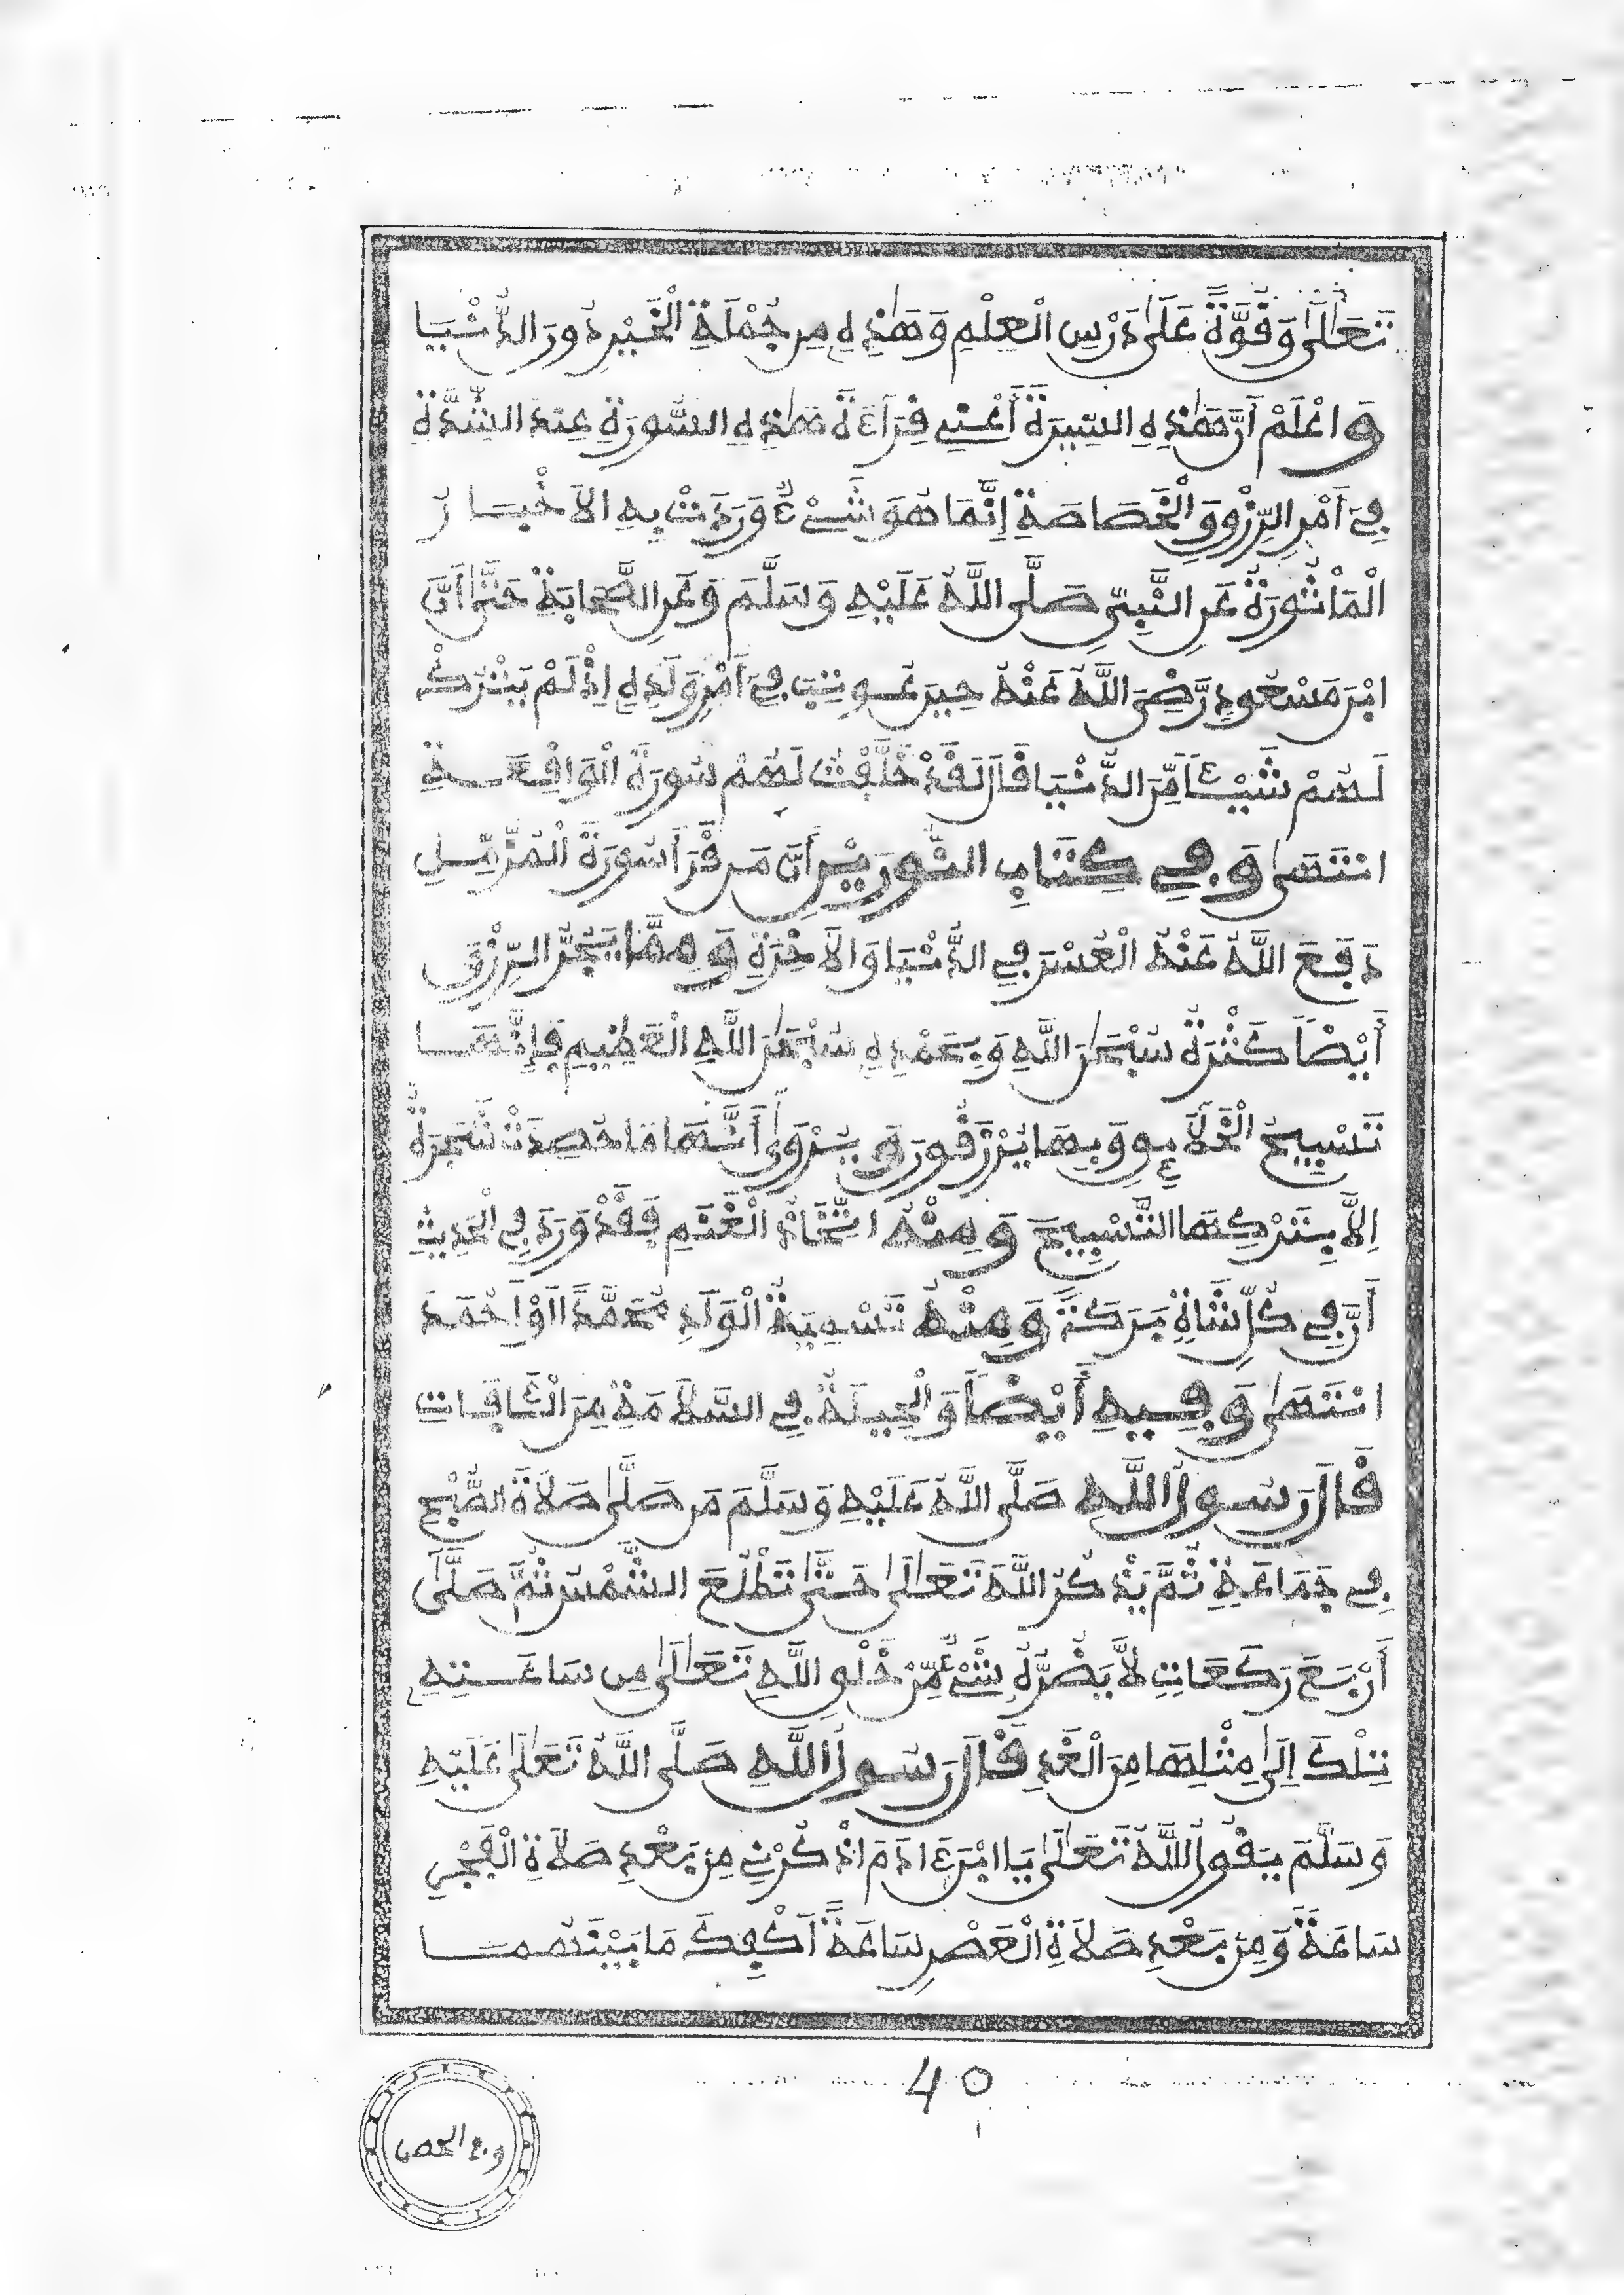 تَعَالَىٰ وَقُوَّةً عَلَىٰ دَرْسِ الْعِلْمِ وَهَٰذِهِ مِن جُمْلَةِ الْخَيْرِ دُونَ الدُّنْيَا
وَاعْلَمْ أَنَّ هَٰذِهِ السِّيرَةَ أَعْنِي قِرَاءَةَ هَٰذِهِ السُّورَةِ عِنْدَ الشِّدَّةِ
فِي أَمْرِ الرِّزْقِ وَالْخَصَاصَةِ إِنَّمَا هُوَ شَيْءٌ وَرَدَتْ بِهِ الْأَخْبَارُ
الْمَأْثُورَةُ عَنِ النَّبِيِّ صَلَّى اللَّهُ عَلَيْهِ وَسَلَّمَ وَعَنِ الصَّحَابَةِ حَتَّىٰ أَنَّ
ابْنَ مَسْعُودٍ رَّضِيَ اللَّهُ عَنْهُ حِينَ عُوتِبَ فِي أَمْرِ وَلَدِهِ إِذْ لَمْ يَتْرُكْ
لَهُمْ شَيْئًا مِّنَ الدُّنْيَا قَالَ لَقَدْ خَلَّفْتُ لَهُمْ سُورَةَ الْوَاقِعَةِ
انْتَهَىٰ وَفِي كِتَابِ النُّورَيْنِ أَنَّ مَن قَرَأَ سُورَةَ الْمُزَّمِّلِ
دَفَعَ اللَّهُ عَنْهُ الْعُسْرَ فِي الدُّنْيَا وَالْآخِرَةِ وَمِمَّا يَجُرُّ الرِّزْقَ
أَيْضًا كَثْرَةُ سُبْحَٰنَ اللَّهِ وَبِحَمْدِهِ سُبْحَٰنَ اللَّهِ الْعَظِيمِ فَإِنَّهَا
تَسْبِيحُ الْخَلَآئِقِ وَبِهَا يُرْزَقُونَ وَيُرْوَىٰ أَنَّهَا مَا حُصِدَتْ شَجَرَةٌ
إِلَّا بِتَرْكِهَا التَّسْبِيحَ وَمِنْهُ اتِّخَاذُ الْغَنَمِ فَقَدْ وَرَدَ فِي الْحَدِيثِ
أَنَّ فِي كُلِّ شَاةٍ بَرَكَةً وَمِنْهُ تَسْمِيَةُ الْوَلَدِ مُحَمَّدًا أَوْ أَحْمَدَ
انْتَهَىٰ وَفِيهِ أَيْضًا وَالْحِيلَةُ فِي السَّلَامَةِ مِنَ الْآفَاتِ
قَالَ رَسُولُ اللَّهِ صَلَّى اللَّهُ عَلَيْهِ وَسَلَّمَ مَن صَلَّىٰ صَلَاةَ الصُّبْحِ
فِي جَمَاعَةٍ ثُمَّ يَذْكُرُ اللَّهَ تَعَالَىٰ حَتَّىٰ تَطْلُعَ الشَّمْسُ ثُمَّ صَلَّىٰ
أَرْبَعَ رَكَعَاتٍ لَّا يَضُرُّهُ شَيْءٌ مِّنْ خَلْقِ اللَّهِ تَعَالَىٰ مِن سَاعَتِهِ
تِلْكَ إِلَىٰ مِثْلِهَا مِنَ الْغَدِ قَالَ رَسُولُ اللَّهِ صَلَّى اللَّهُ تَعَالَىٰ عَلَيْهِ
وَسَلَّمَ يَقُولُ اللَّهُ تَعَالَىٰ يَا ابْنَ ءَادَمَ اذْكُرْنِي مِنْ بَعْدِ صَلَاةِ الْفَجْرِ
سَاعَةً وَمِنْ بَعْدِ صَلَاةِ الْعَصْرِ سَاعَةً أَكْفِكَ مَا بَيْنَهُمَا
40